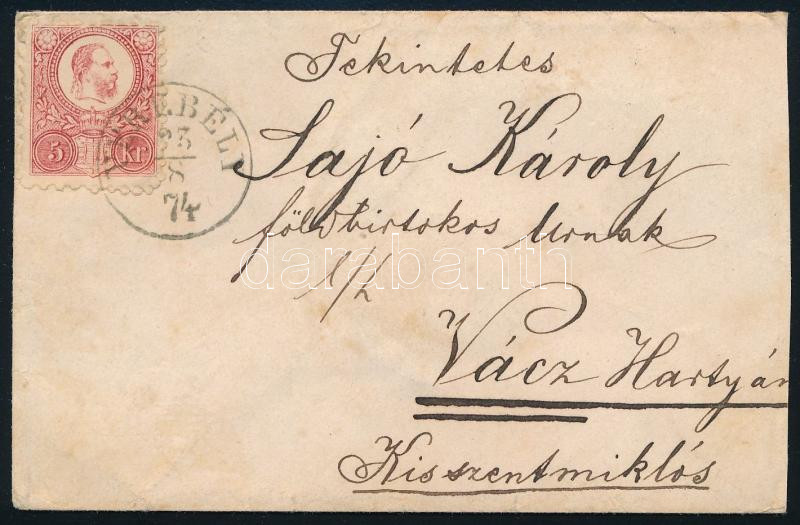 Tekintetes
Sajó Károly
földbirtokos Urnak
Vácz Hartyán
Kisszentmiklós
5 kr
VEREBÉLY
23
8
74
darabanth